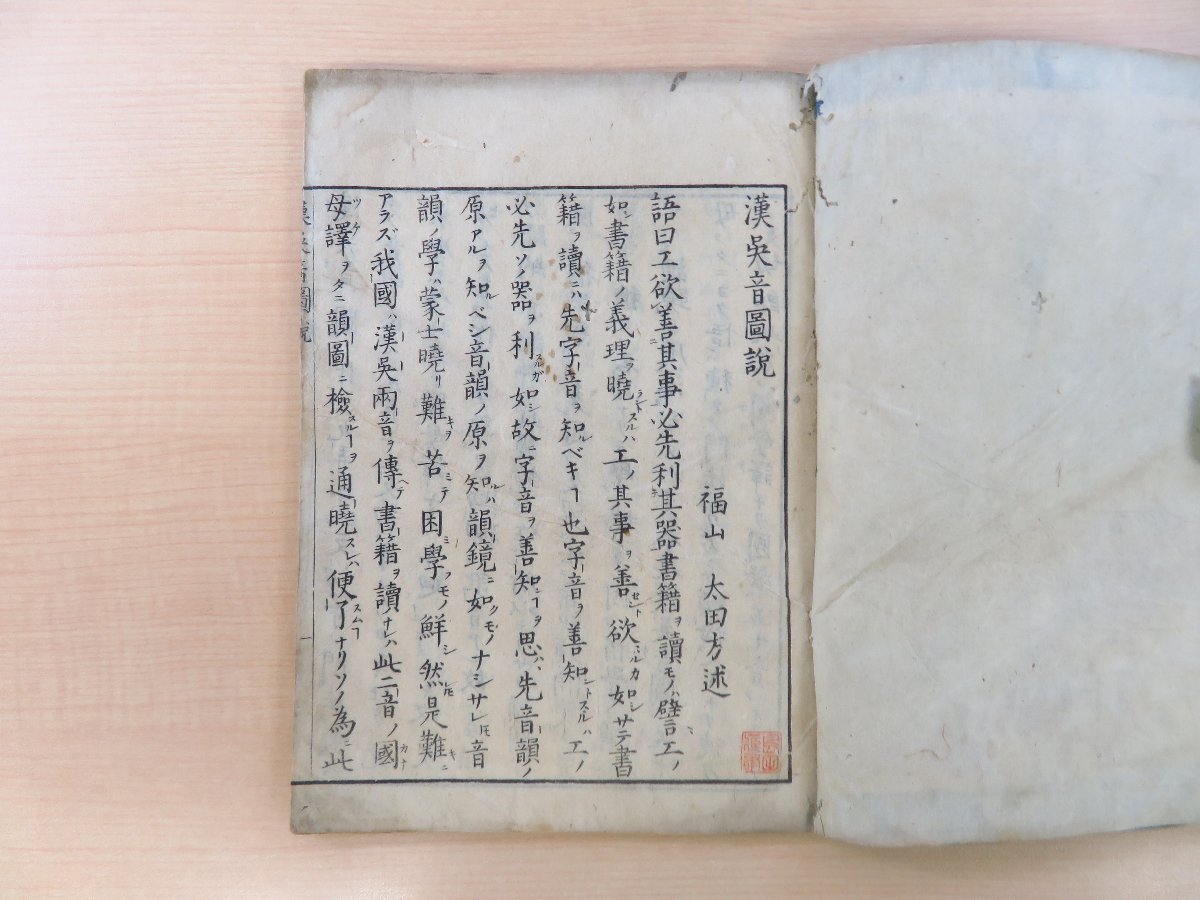 漢吳音圖說
福山 太田方述
語曰工欲善其事必先利其器書籍ヲ讀モノハ譬ハ工ノ
如シ書籍ノ義理ヲ曉ラントスルハ工ノ其事ヲ善セント欲ルカ如シサテ書
籍ヲ讀ニハ先字音ヲ知ルベキヿ也字音ヲ善知ントスルハ工ノ
必先ソノ器ヲ利スルガ如シ故ニ字音ヲ善知ンヿヲ思ハヽ先音韻ノ
原アルヲ知ルベシ音韻ノ原ヲ知ルハ韻鏡ニ如クモノナシサレ𪜈音
韻ノ學ハ蒙士曉リ難キヲ苦ミテ困學ノモノ鮮シ然レ𪜈是難キニ
アラズ我國ハ漢吳兩音ヲ傳ヘテ書籍ヲ讀ナレハ此二音ノ國カナ
母譯ツケヲタニ韻圖ニ檢スルヿヲ通曉スレハ便了スムヿナリソノ為ニ此
漢吳音圖說
一